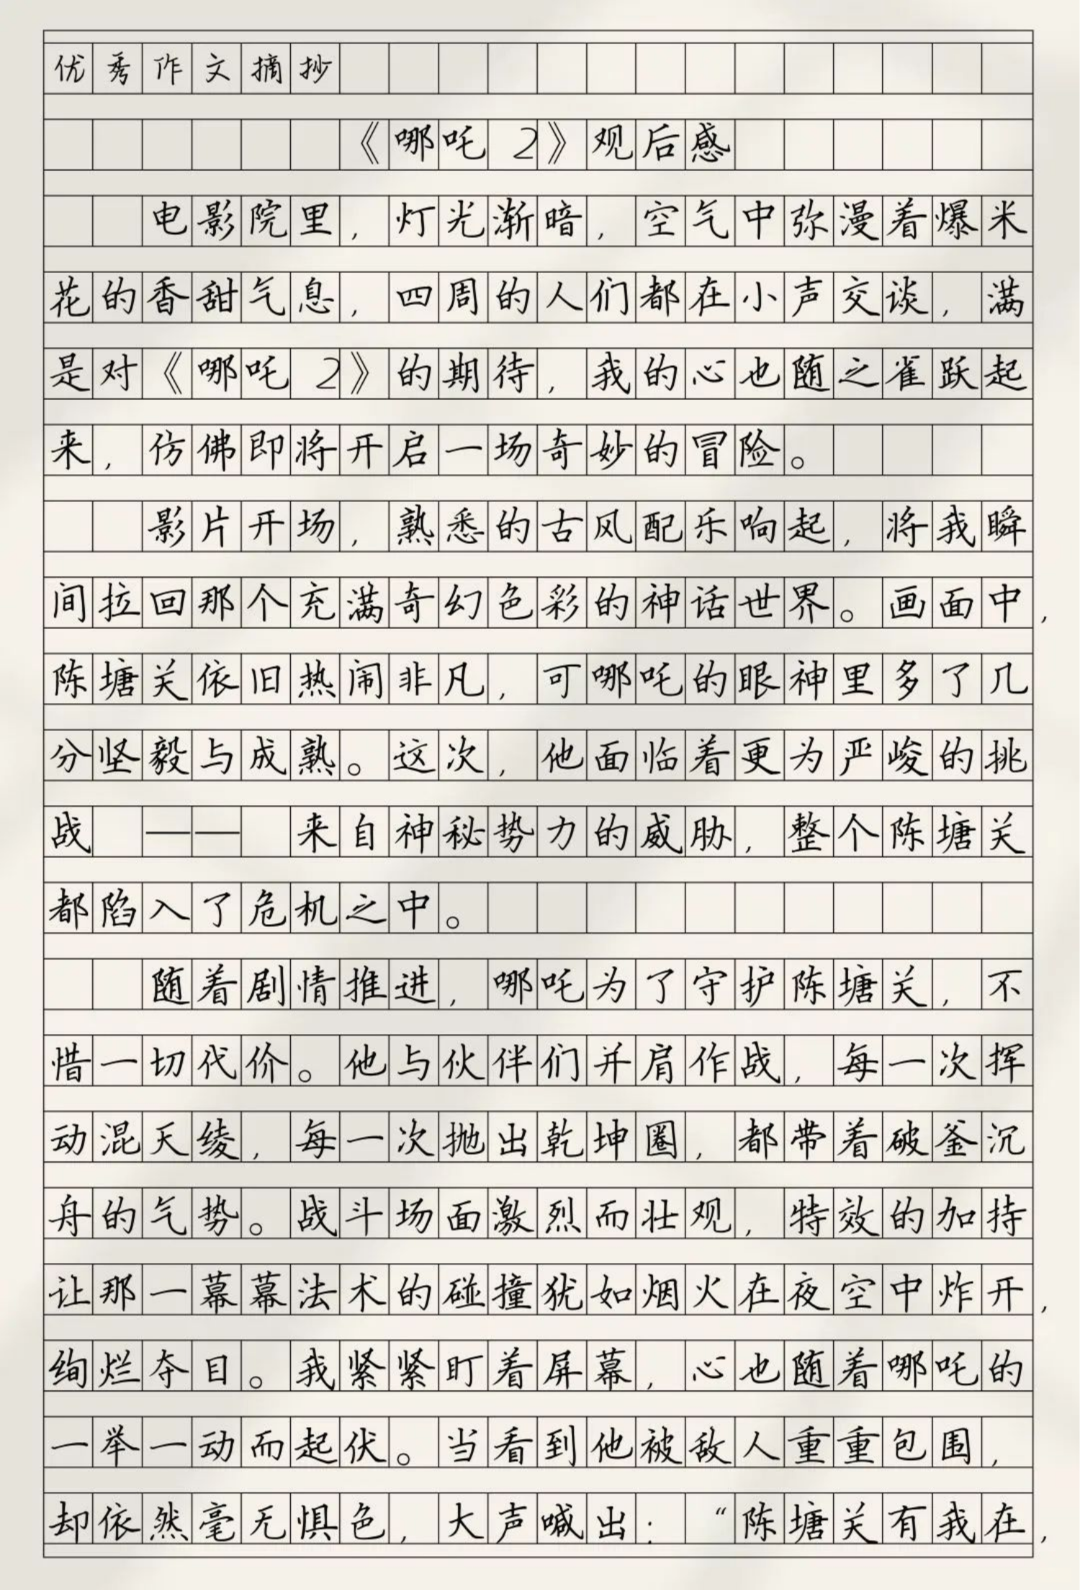 优秀作文摘抄
《哪吒 2》观后感
电影院里，灯光渐暗，空气中弥漫着爆米
花的香甜气息，四周的人们都在小声交谈，满
是对《哪吒 2》的期待，我的心也随之雀跃起
来，仿佛即将开启一场奇妙的冒险。
影片开场，熟悉的古风配乐响起，将我瞬
间拉回那个充满奇幻色彩的神话世界。画面中，
陈塘关依旧热闹非凡，可哪吒的眼神里多了几
分坚毅与成熟。这次，他面临着更为严峻的挑
战 —— 来自神秘势力的威胁，整个陈塘关
都陷入了危机之中。
随着剧情推进，哪吒为了守护陈塘关，不
惜一切代价。他与伙伴们并肩作战，每一次挥
动混天绫，每一次抛出乾坤圈，都带着破釜沉
舟的气势。战斗场面激烈而壮观，特效的加持
让那一幕幕法术的碰撞犹如烟火在夜空中炸开，
绚烂夺目。我紧紧盯着屏幕，心也随着哪吒的
一举一动而起伏。当看到他被敌人重重包围，
却依然毫无惧色，大声喊出：“陈塘关有我在，